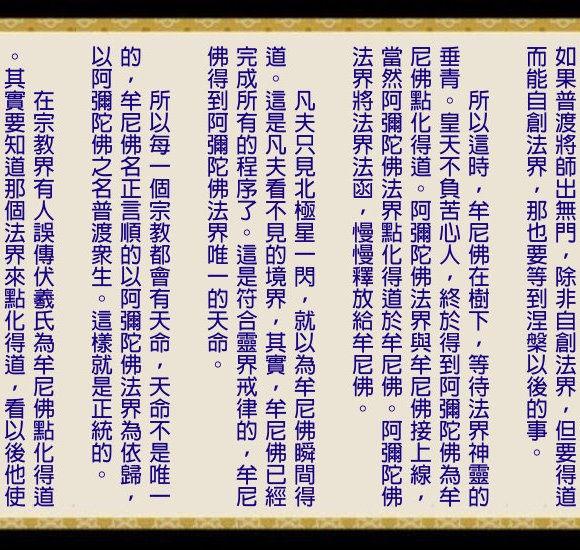 如果普渡將師出無門，除非自創法界，但要得道
而能自創法界，那也要等到涅槃以後的事。
所以這時，牟尼佛在樹下，等待法界神靈的
垂青。皇天不負苦心人，終於得到阿彌陀佛為牟
尼佛點化得道。阿彌陀佛法界與牟尼佛接上線，
當然阿彌陀佛法界點化得道於牟尼佛。阿彌陀佛
法界將法界法函，慢慢釋放給牟尼佛。
凡夫只見北極星一閃，就以為牟尼佛瞬間得
道。這是凡夫看不見的境界，其實，牟尼佛已經
完成所有的程序了。這是符合靈界戒律的，牟尼
佛得到阿彌陀佛法界唯一的天命。
所以每一個宗教都會有天命，天命不是唯一
的，牟尼佛名正言順的以阿彌陀佛法界為依歸，
以阿彌陀佛之名普渡衆生。這樣就是正統的。
在宗教界有人誤傳伏羲氏為牟尼佛點化得道
。其實要知道那個法界來點化得道，看以後他使